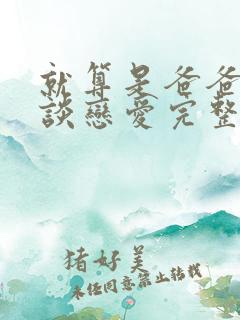 就算是爸爸
談戀愛完整
猪好美
未经同意禁止转载